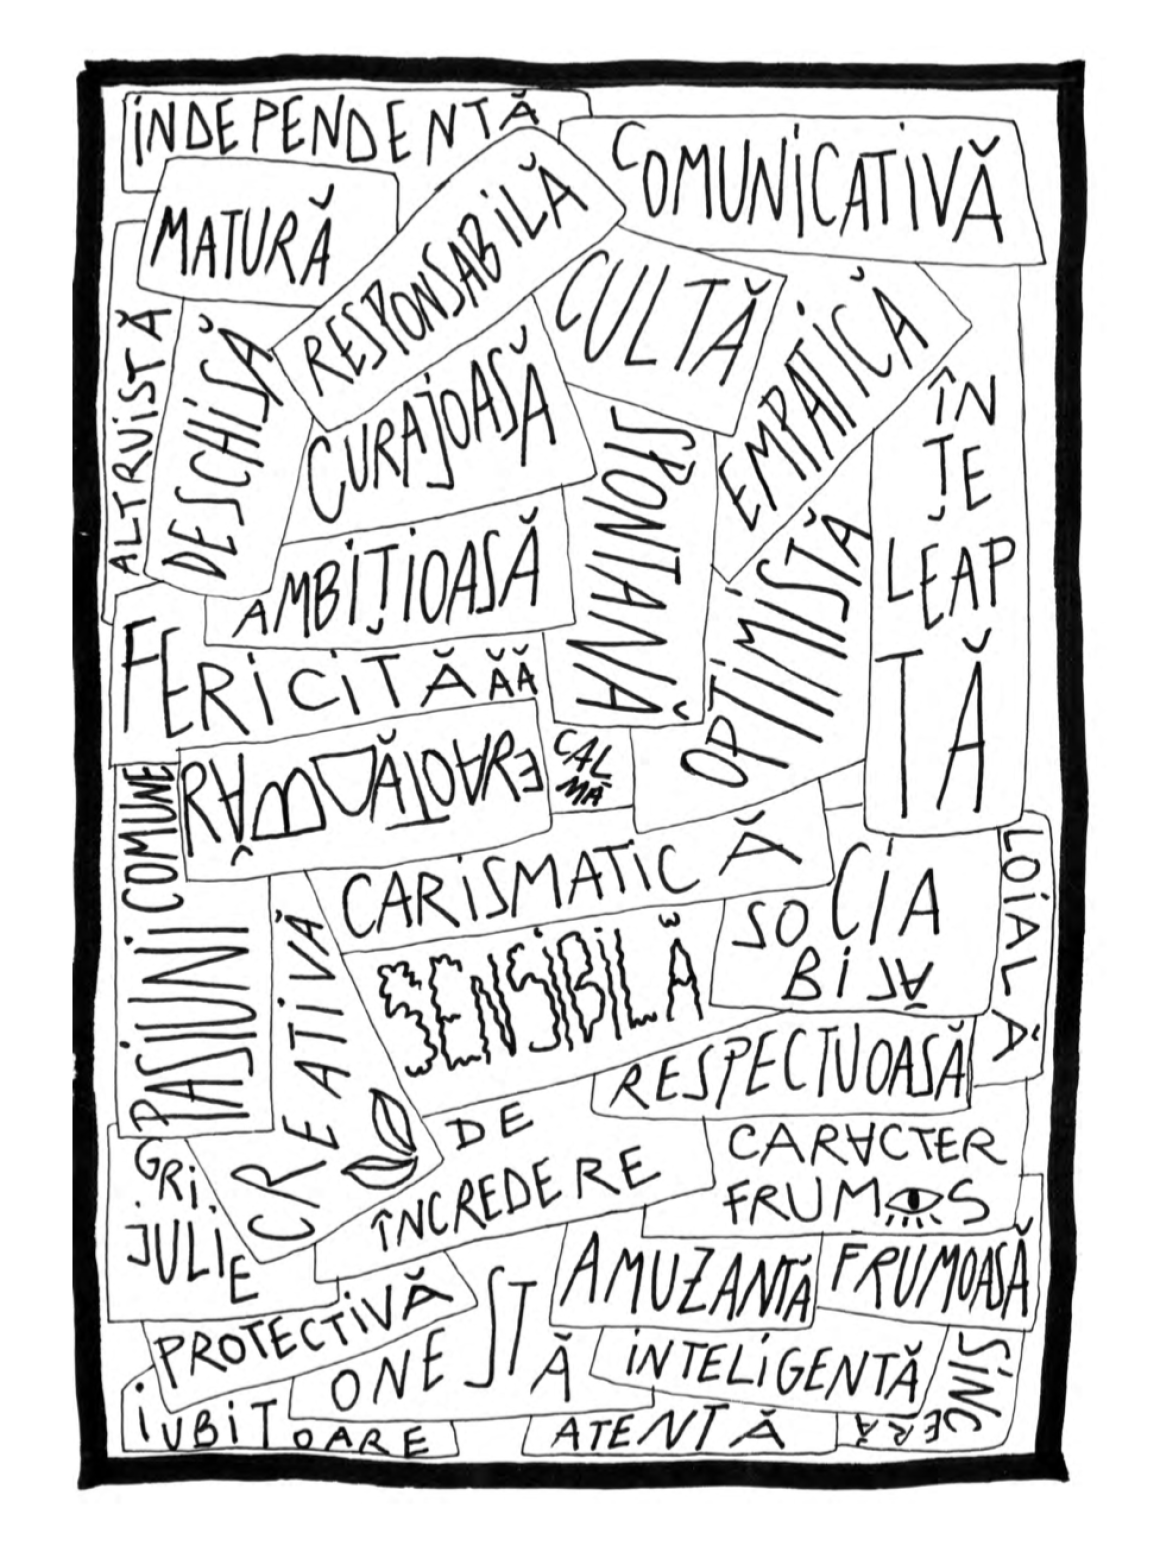 INDEPENDENTĂ
COMUNICATIVĂ
MATURĂ
RESPONSABILĂ
CULTĂ
EMPATICĂ
ALTRUISTĂ
DESCHISĂ
CURAJOASĂ
SPONTANĂ
ÎN
ȚE
LEAP
TĂ
AMBIȚIOASĂ
OPTIMISTĂ
FERICITĂĂĂ
RĂBDĂTOARE
CAL
MĂ
PASIUNI COMUNE
CARISMATICĂ
SOCIA
BILĂ
LOIALĂ
CREATIVĂ
SENSIBILĂ
RESPECTUOASĂ
GRI
JULIE
DE
ÎNCREDERE
CARACTER
FRUMOS
AMUZANTĂ
FRUMOASĂ
PROTECTIVĂ
ONESTĂ
INTELIGENTĂ
SINC
ERĂ
IUBITOARE
ATENTĂ